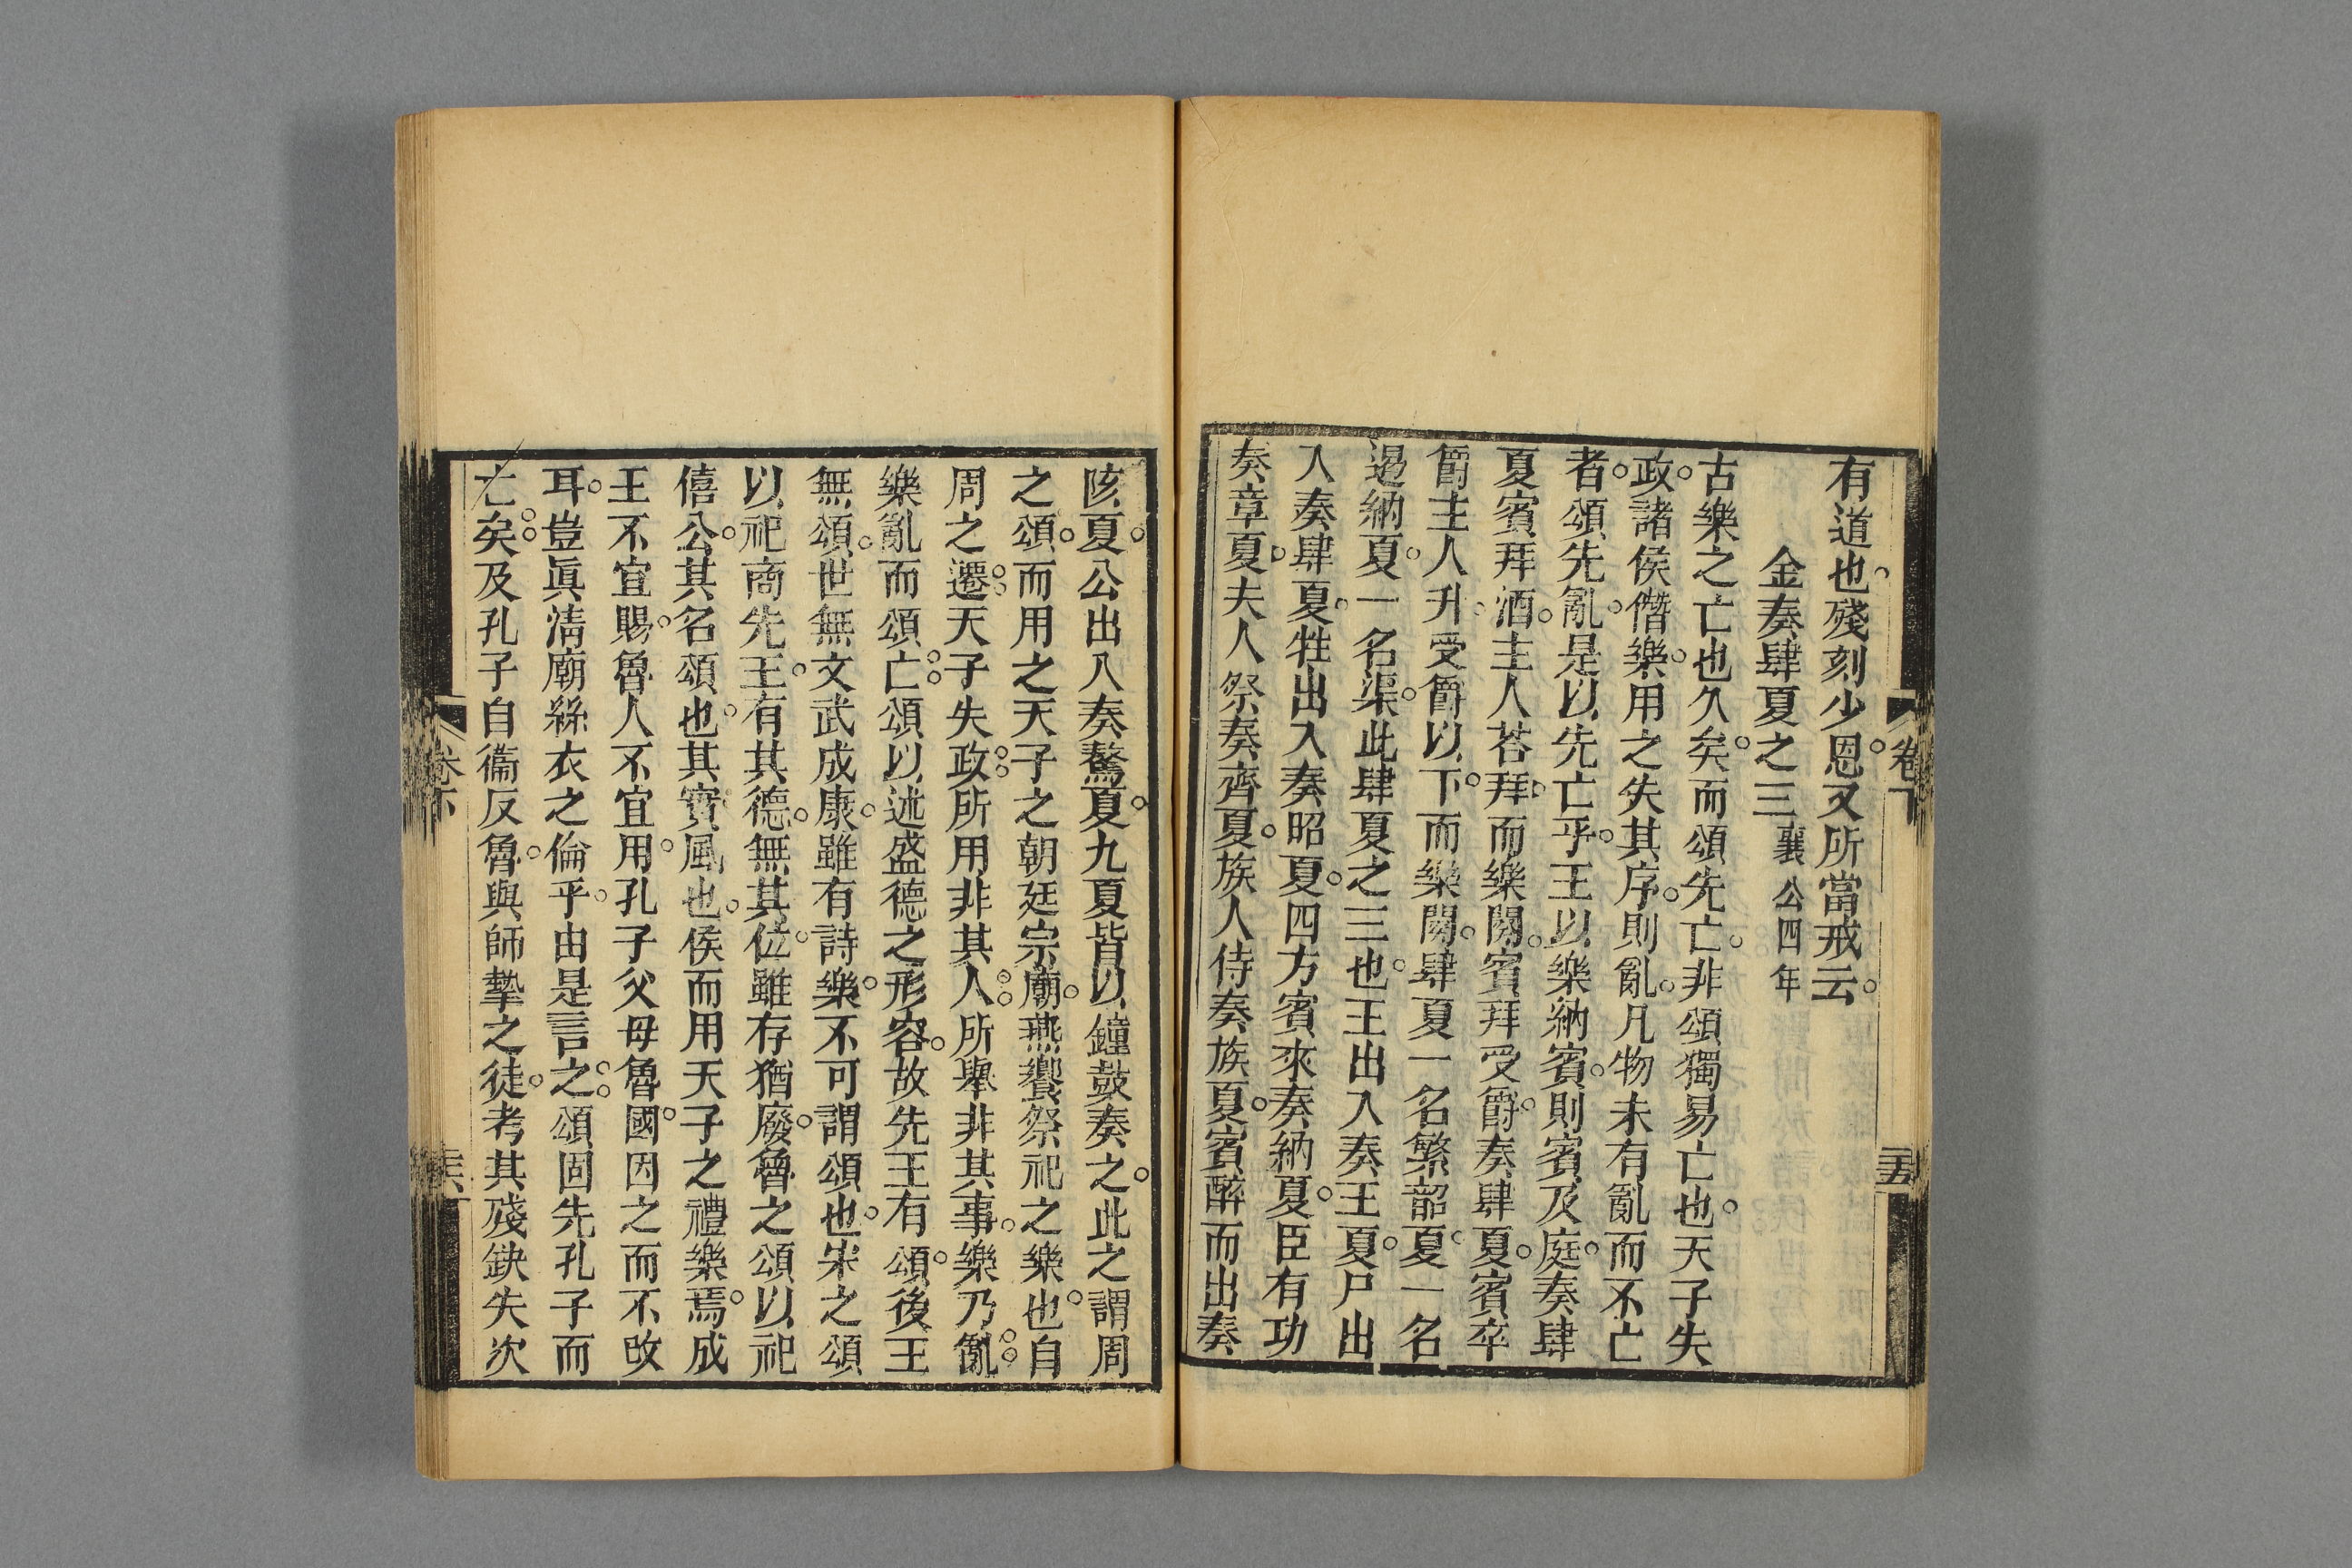 有道也殘刻少恩又所當戒云
金奏肆夏之三襄公四年
古樂之亡也久矣而頌先亡非頌獨易亡也天子失
政諸侯僭樂用之失其序則亂凡物未有亂而不亡
者頌先亂是以先亡乎王以樂納賓則賓及庭奏肆
夏賓拜酒主人荅拜而樂闋賓拜受爵奏肆夏賓卒
爵主人升受爵以下而樂闋肆夏一名繁韶夏一名
遏納夏一名渠此肆夏之三也王出入奏王夏尸出
入奏肆夏牲出入奏昭夏四方賓來奏納夏臣有功
奏章夏夫人祭奏齊夏族人侍奏族夏賓醉而出奏
卷下
三五
陔夏公出入奏驁夏九夏皆以鐘鼓奏之此之謂周
之頌而用之天子之朝廷宗廟燕饗祭祀之樂也自
周之遷天子失政所用非其人所舉非其事樂乃亂
樂亂而頌亡頌以述盛德之形容故先王有頌後王
無頌世無文武成康雖有詩樂不可謂頌也宋之頌
以祀商先王有其德無其位雖存猶廢魯之頌以祀
僖公其名頌也其實風也侯而用天子之禮樂焉成
王不宜賜魯人不宜用孔子父母魯國因之而不改
耳豈眞淸廟絲衣之倫乎由是言之頌固先孔子而
亡矣及孔子自衞反魯與師摯之徒考其殘缺失次
卷下